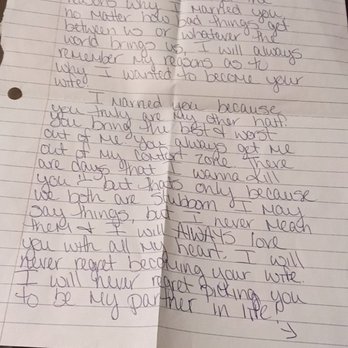 reasons why I married you,
no matter how bad things get
between us or whatever the
world brings us, I will always
remember my reasons as to
why I wanted to become your
wife.
I married you because
you truly are my other half.
You bring the best & worst
out of me & you always get me
out of my comfort zone. There
are days that I wanna kill
you - but thats only because
we both are stubborn. I may
say things, but I never mean
them & I will ALWAYS love
you with all my heart. I will
never regret becoming your wife.
I will never regret picking you
to be my partner in life.